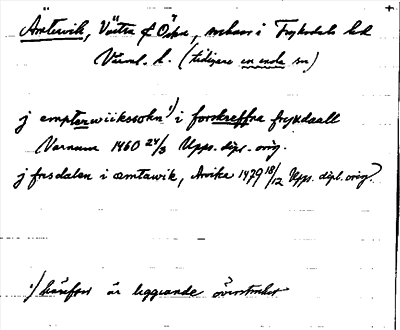 Amtervik, Västra & Östra, socknar i Fryksdals hd
Värml. l. (tidigare en enda sn)
j empterwiikssokn ¹) i forskreffra frykdaall
Varnum 1460 24/3 Upps. dipl. orig.
j frisdalen i æmtawik, Arvika 1479 18/12 Upps. dipl. orig.
¹) härefter är liggiande överstruket